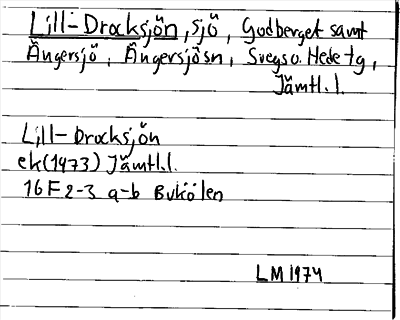 Lill-Drocksjön, sjö, Godberget samt
Ängersjö, Ängersjösn, Svegs o. Hede tg,
Jämtl.l.
Lill-Drocksjön
ek(1973) Jämtl.l.
16F 2-3 a-b Bukölen
LM 1974